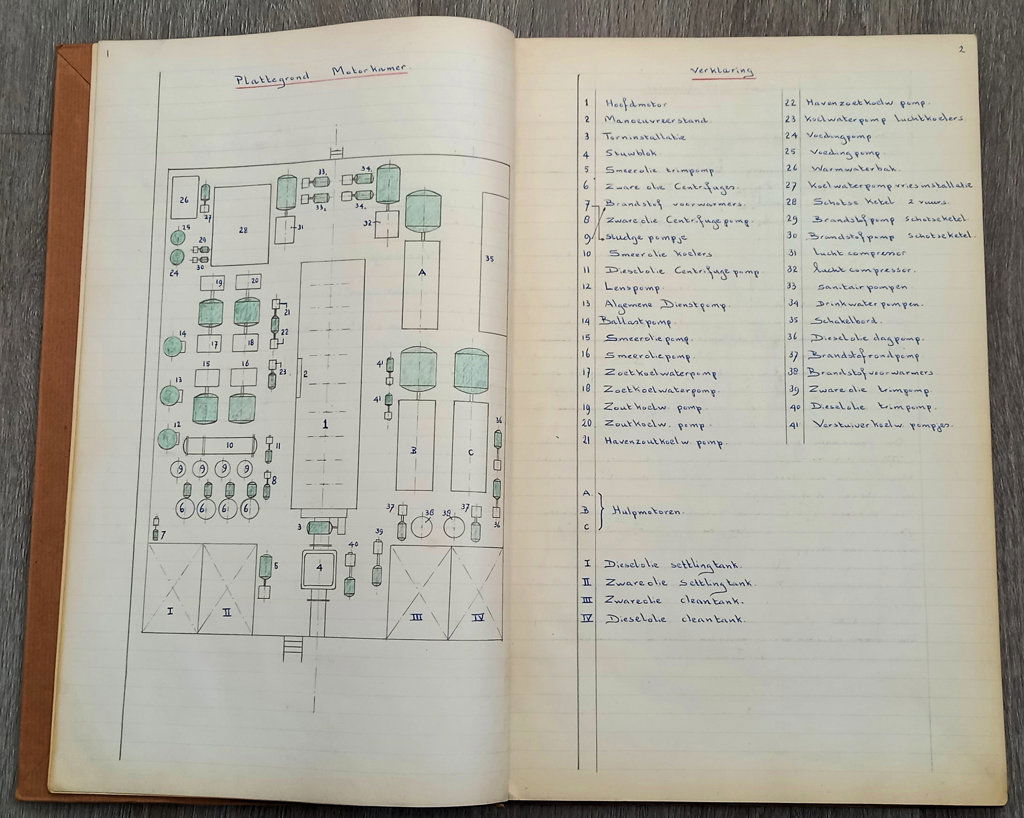 1
Plattegrond Motorkamer.
33.
34.
26
27
33.
34.
25
32
31
28
29
24
30
A
35
19
20
21
22
14
17
18
23
15
16
2
41
41
13
1
12
10
11
36
B
C
9 9 9 9
8
6 6 6 6
37
38
38
37
36
7
3
39
40
5
4
I
II
III
IV
2
Verklaring
1 Hoofdmotor
2 Manoeuvreerstand
3 Torninstallatie
4 Stuwblok
5 Smeerolie trimpomp
6 Zware olie Centrifuges.
7 Brandstof voorwarmers.
8 Zware olie Centrifugepomp.
9 sludge pompje
10 Smeerolie koelers
11 Dieselolie Centrifugepomp
12 Lenspomp.
13 Algemene Dienstpomp.
14 Ballastpomp.
15 Smeeroliepomp.
16 Smeeroliepomp
17 Zoetkoelwaterpomp
18 Zoetkoelwaterpomp.
19 Zoutkoelw pomp.
20 Zoutkoelw. pomp.
21 Havenzoutkoelw pomp.
22 Havenzoetkoelw pomp.
23 Koelwaterpomp luchtkoelers
24 Voedingpomp
25 Voedingpomp.
26 Warmwaterbak.
27 Koelwaterpomp vriesinstallatie
28 Schotse Ketel 2 vuurs.
29 Brandstofpomp schotseketel.
30 Brandstofpomp schotseketel.
31 luchtcompressor
32 luchtcompressor.
33 sanitairpompen
34 Drinkwaterpompen.
35 Schakelbord.
36 Dieselolie dagpomp.
37 Brandstofrondpomp
38 Brandstofvoorwarmers.
39 Zware olie trimpomp
40 Dieselolie trimpomp.
41 Verstuiverkoelw pompjes.
A
B Hulpmotoren.
C
I Dieselolie settlingtank.
II Zwareolie settlingtank.
III Zwareolie cleantank.
IV Dieselolie cleantank.